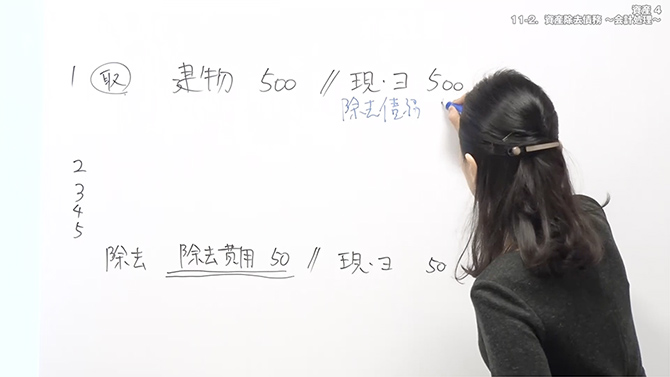 資産 4
11-2. 資産除去債務 ～会計処理～
1 取 建物 500 // 現・ヨ 500
除去債務
2
3
4
5
除去 除去費用 50 // 現・ヨ 50